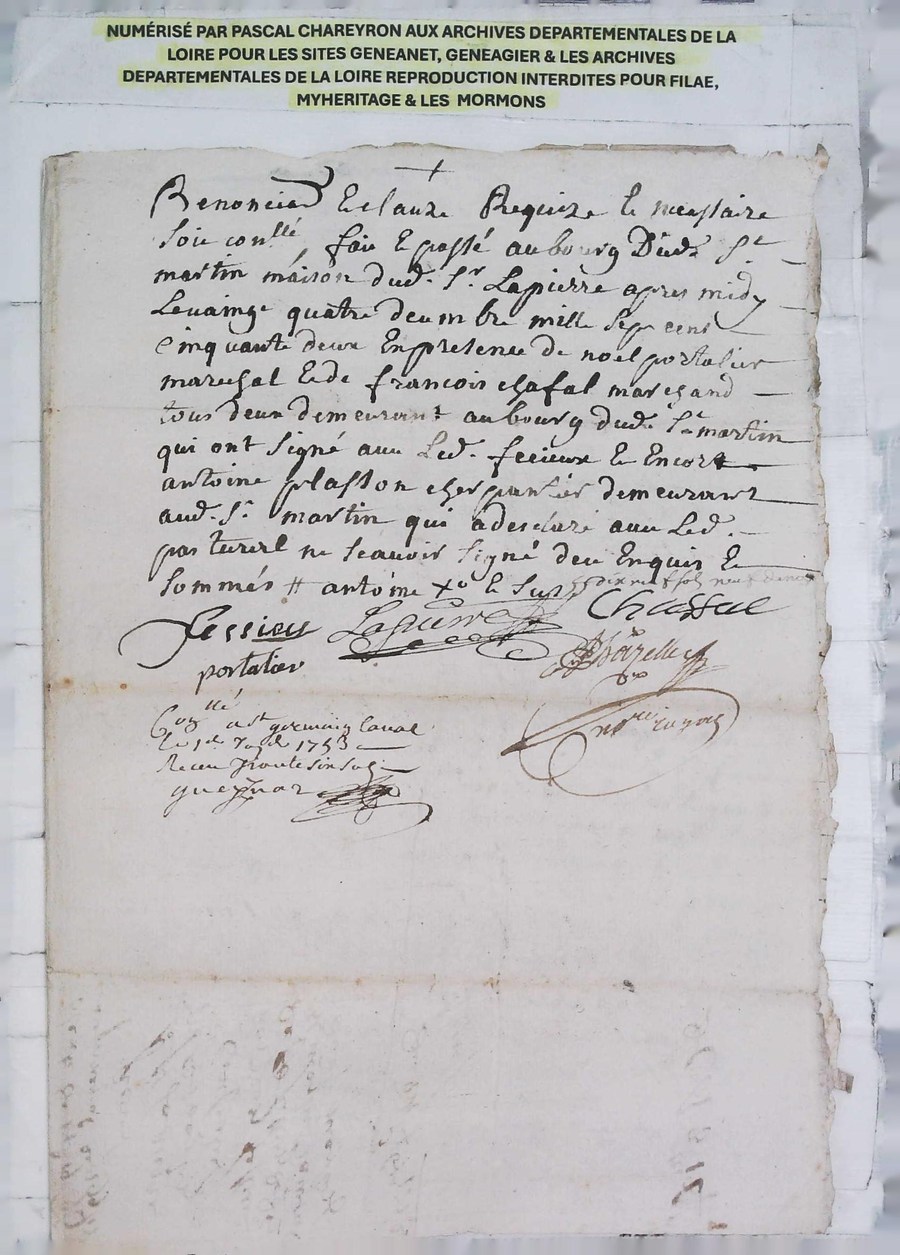 NUMÉRISÉ PAR PASCAL CHAREYRON AUX ARCHIVES DEPARTEMENTALES DE LA
LOIRE POUR LES SITES GENEANET, GENEAGIER & LES ARCHIVES
DEPARTEMENTALES DE LA LOIRE REPRODUCTION INTERDITES POUR FILAE,
MYHERITAGE & LES MORMONS
Renonciaõ & clauze Requize & necessaire
Soit con^llé, fait & passé au bourg Dud. S^t
martin maison dud. S^r. Lapierre apres midy
Le vaingt quatre decembre mille sept cent
Cinquante deux En presence de noel portalier
marechal & de francois chafal marchand
tous deux demeurant au bourg dud. S^t martin
qui ont signé avec Led. & Encore
antoine plasson cherpantier demeurant
aud. S^t. martin qui a desclaré avec Led.
ne scavoir signé de ce Enquis &
sommés # antoine
Jessieu Lapierre
portalier
Con^llé a S^t germain Laval
Le 1753
Receu trente six sols